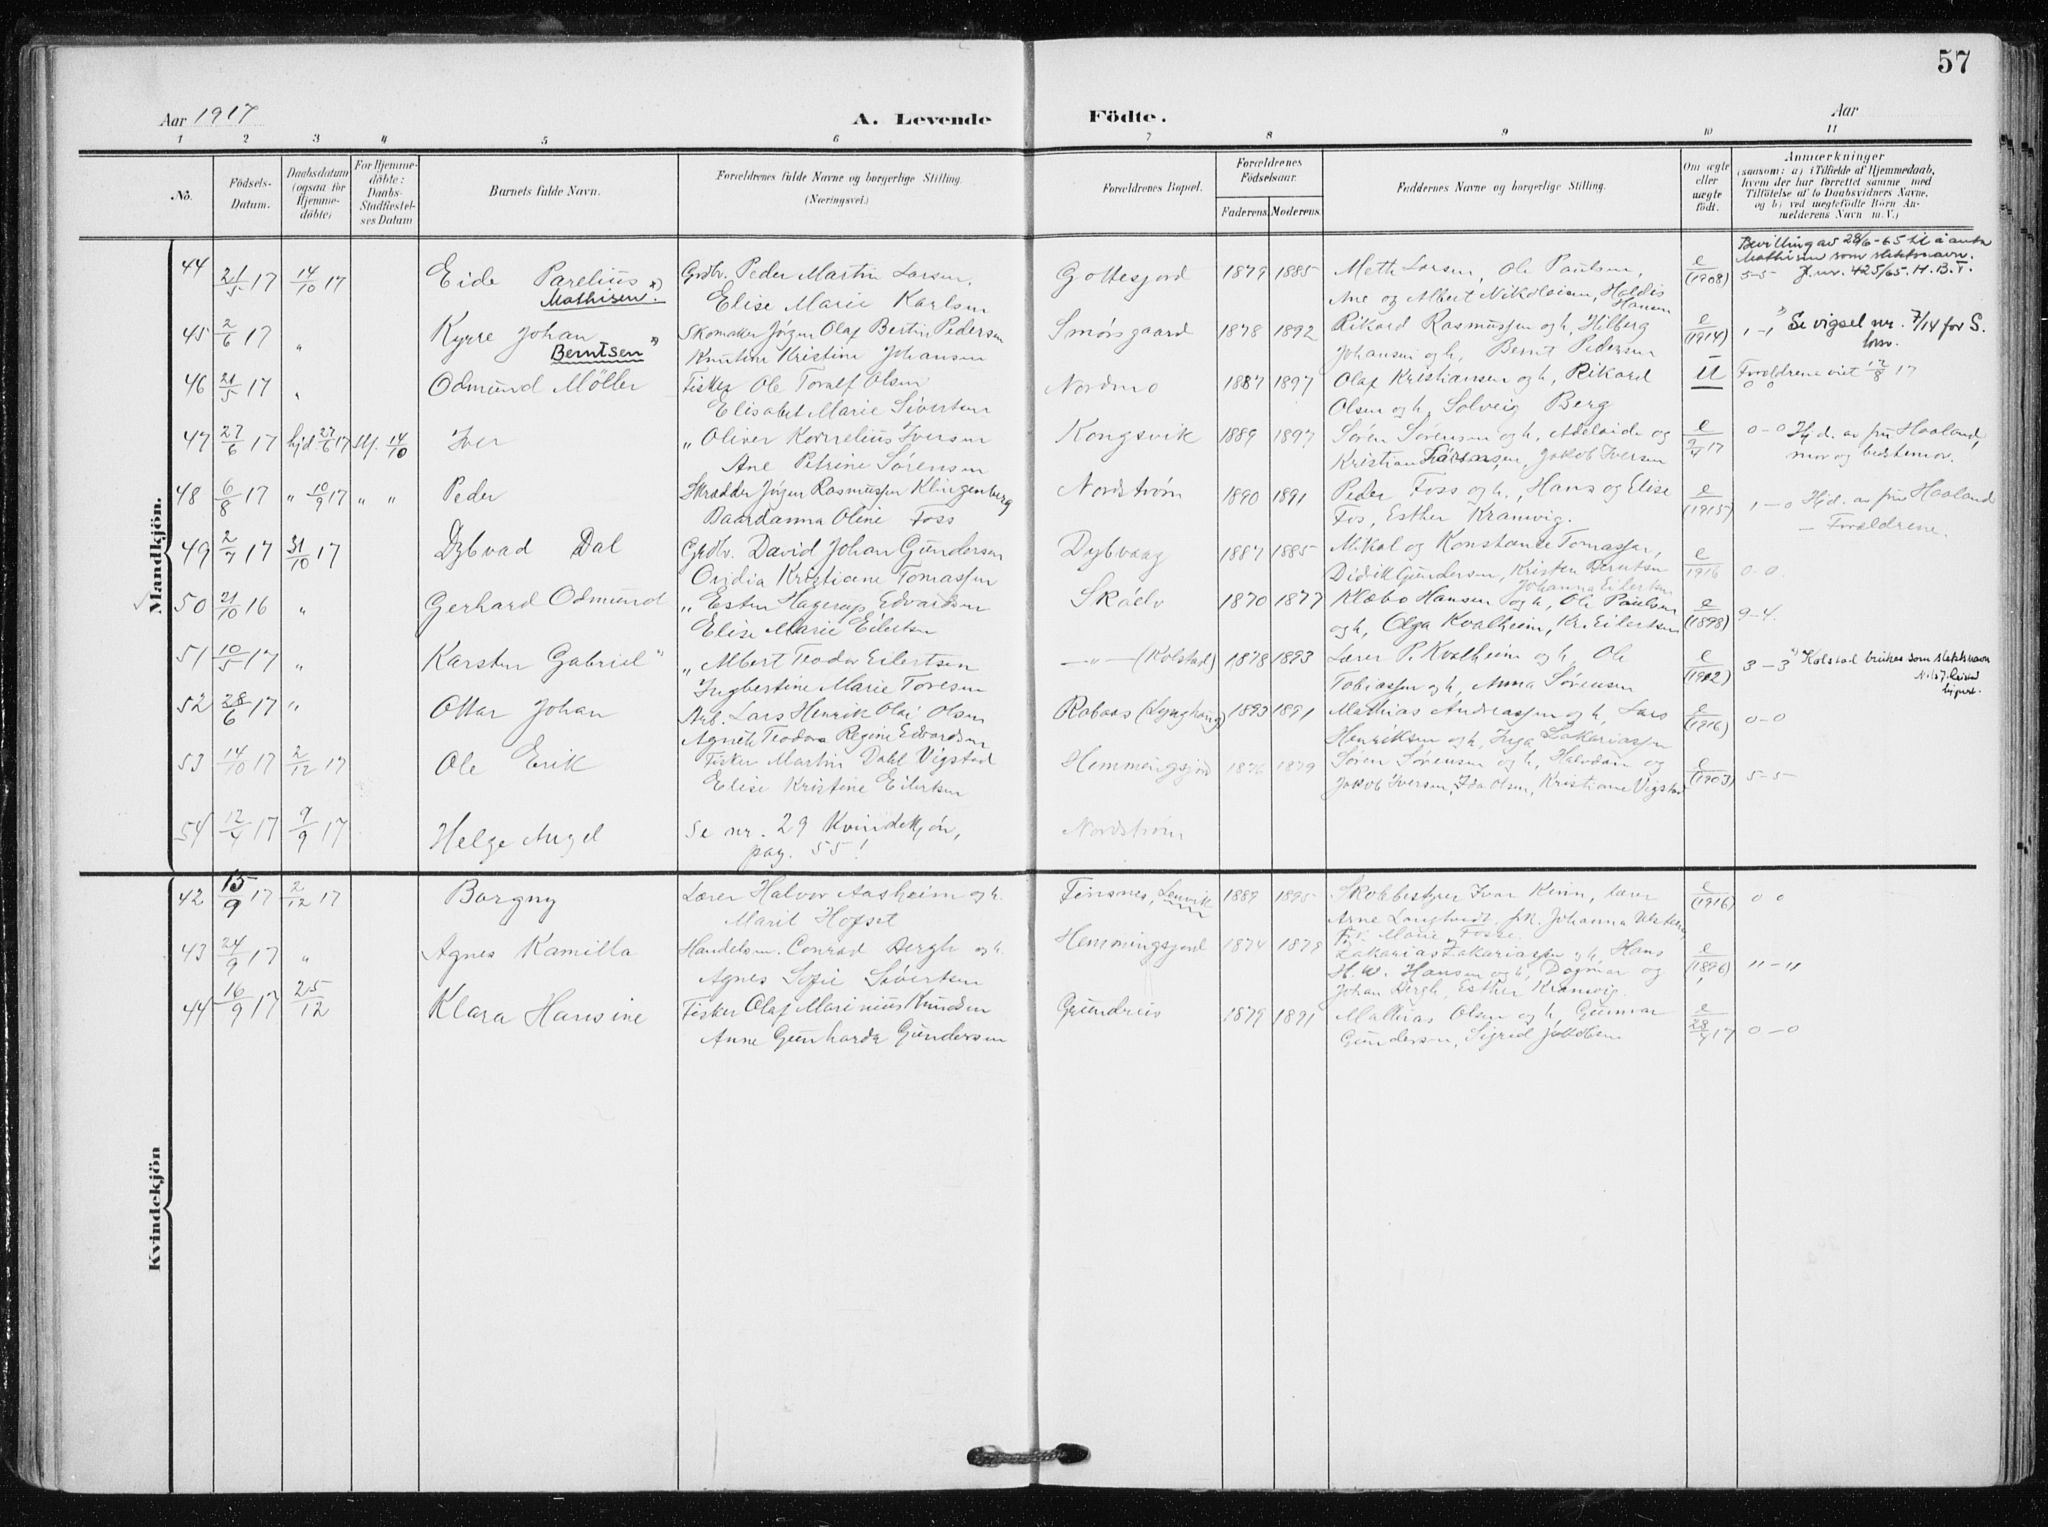 57
Aar 1917 A. Levende Födte. Aar
1 2 3 4 5 6 7 8 9 10 11
No. Födsels-Datum. Daabsdatum (ogsaa for Hjemmedöbte) For Hjemmedöbte: Daabs-Stadfæstelses Datum Barnets fulde Navn. Forældrenes fulde Navne og borgerlige Stilling. (Næringsvei.) Forældrenes Bopæl. Forældrenes Födselsaar. Faderens. Moderens. Faddernes Navne og borgerlige Stilling. Om ægte eller uægte födt. Anmærkninger (saasom: a) i Tilfælde af Hjemmedaab, hvem der har forrettet samme, med Tilföielse af to Daabsvidners Navne, og b) ved uægtefödte Börn Anmelderens Navn m. V.)
Mandkjön.
Bevilling av 28/6-65 til å anta
Mathisen som slektsnavn.
44 21/5 17 14/10 17 Eide Parelius *) Grdbr. Peder Martin Larsen, Gottesjord 1879 1885 Meth Larsen, Ole Paulsen, e (1908) 5-5 J.nr. 425/65. H. B. T.
Mathisen. Elise Marie Karlsen Ane og Albert Nikolaisen, Haldis Hansen
45 2/6 17 " Kyrre Johan Skomaker Jörgen Olaf Bertin Pedersen Smörsgaard 1878 1892 Rikard Rasmussen og h, Hilberg e (1914) 1-1 *) Se vigsel nr. 7/14 for S.
Berntsen *) Knutine Kristine Johansen Johansen og h, Bernt Pedersen
46 21/5 17 " Odmund Möller Fisker Ole Toralf Olsen Nordmo 1887 1897 Olaf Kristiansen og h, Rikard U Forældrene viet 12/8 17
Elisabet Marie Sivertsen Olsen og h, Solveig Berg 0 0
47 27/6 17 hjd. 27/6 17 stf. 14/10 Iver " Oliver Kornelius Iversen Kongsvik 1889 1897 Sören Sörensen og h, Adelaide og e 2/4 17 0-0 Hjd. av fru Haaland,
Ane Petrine Sörensen Kristian Sörensen, Jakob Iversen mor og bestemor.
48 6/8 17 " 10/9 17 " " Peder Skrædder Jörgen Rasmussen Klingenberg Nordström 1890 1891 Peder Foss og h., Hans og Elise e (1915) 1-0 Hjd. av fru Haaland
Baardanna Oline Foss Fos, Esther Kranvig. – Forældrene.
49 2/7 17 31/10 17 Dybvad Dal Grdbr. David Johan Gundersen Dybvaag 1887 1885 Mikal og Konstance Tomassen, e 1916 0-0
Ovidia Kristiane Tomassen Didrik Gundersen, Kristen Berntsen
Johanna Eilertsen
50 21/10 16 " Gerhard Odmund " Esten Hagerup Edvardsen Skáelv 1870 1877 Klæbo Hansen og h, Ole Paulsen e (1898) 9-4.
Elise Marie Eilertsen og h, Olga Kvalheim, Kr. Eilertsen
51 10/5 17 " Karsten Gabriel *) " Albert Teodor Eilertsen —"— (Kolstad) 1878 1893 Lærer P. Kvalheim og h Ole e (1912) 3-3 *) Kolstad brukes som slektsnavn
Ingbertine Marie Toresen Tobiassen og h, Anna Sörensen
52 28/6 17 " Ottar Johan Arb. Lars Henrik Olai Olsen 1893 1891 Mathias Andreassen og h, Lars e (1916) 0-0
Agnete Teodora Regine Edvardsen Henriksen og h, Inga Zakariassen
53 14/10 17 2/12 17 Ole Erik Fisker Martin Dahl Vigstad Hemmingsjord 1876 1879 Sören Sörensen og h, Halvdan og e (1903) 5-5
Elise Kristine Eilertsen Jakob Iversen, Ida Olsen, Kristiane Vigstad
54 12/4 17 9/9 17 Helge Angel Se nr. 29 Kvindekjön, Nordström
pag. 55!
Kvindekjön
42 15/9 17 2/12 17 Borgny Lærer Halvor Aasheim og h. Finsnes, Lenvik 1889 1895 Skolebestyrer Ivar Kinn, lærer e (1916) 0 0
Marit Hofset Arne Langhedt, frk. Johanna
Frk. Marie Fosse.
43 24/9 17 " Agnes Kamilla Handelsm. Conrad Bergh og h. Hemmingsjord 1874 1879 Zakarias Zakariassen og h, Hans e (1896) "-"
Agnes Sofie Sivertsen H. W. Hansen og h, Dagmar og
Johan Bergh, Esther Kranvig
44 16/9 17 25/12 Klara Hansine Fisker Olaf Marinius Knudsen Grundreis 1879 1891 Mathias Olsen og h, Gunnar e 28/7 17 0-0
Anne Gunharda Gundersen Gundersen, Sigrid Jakobsen